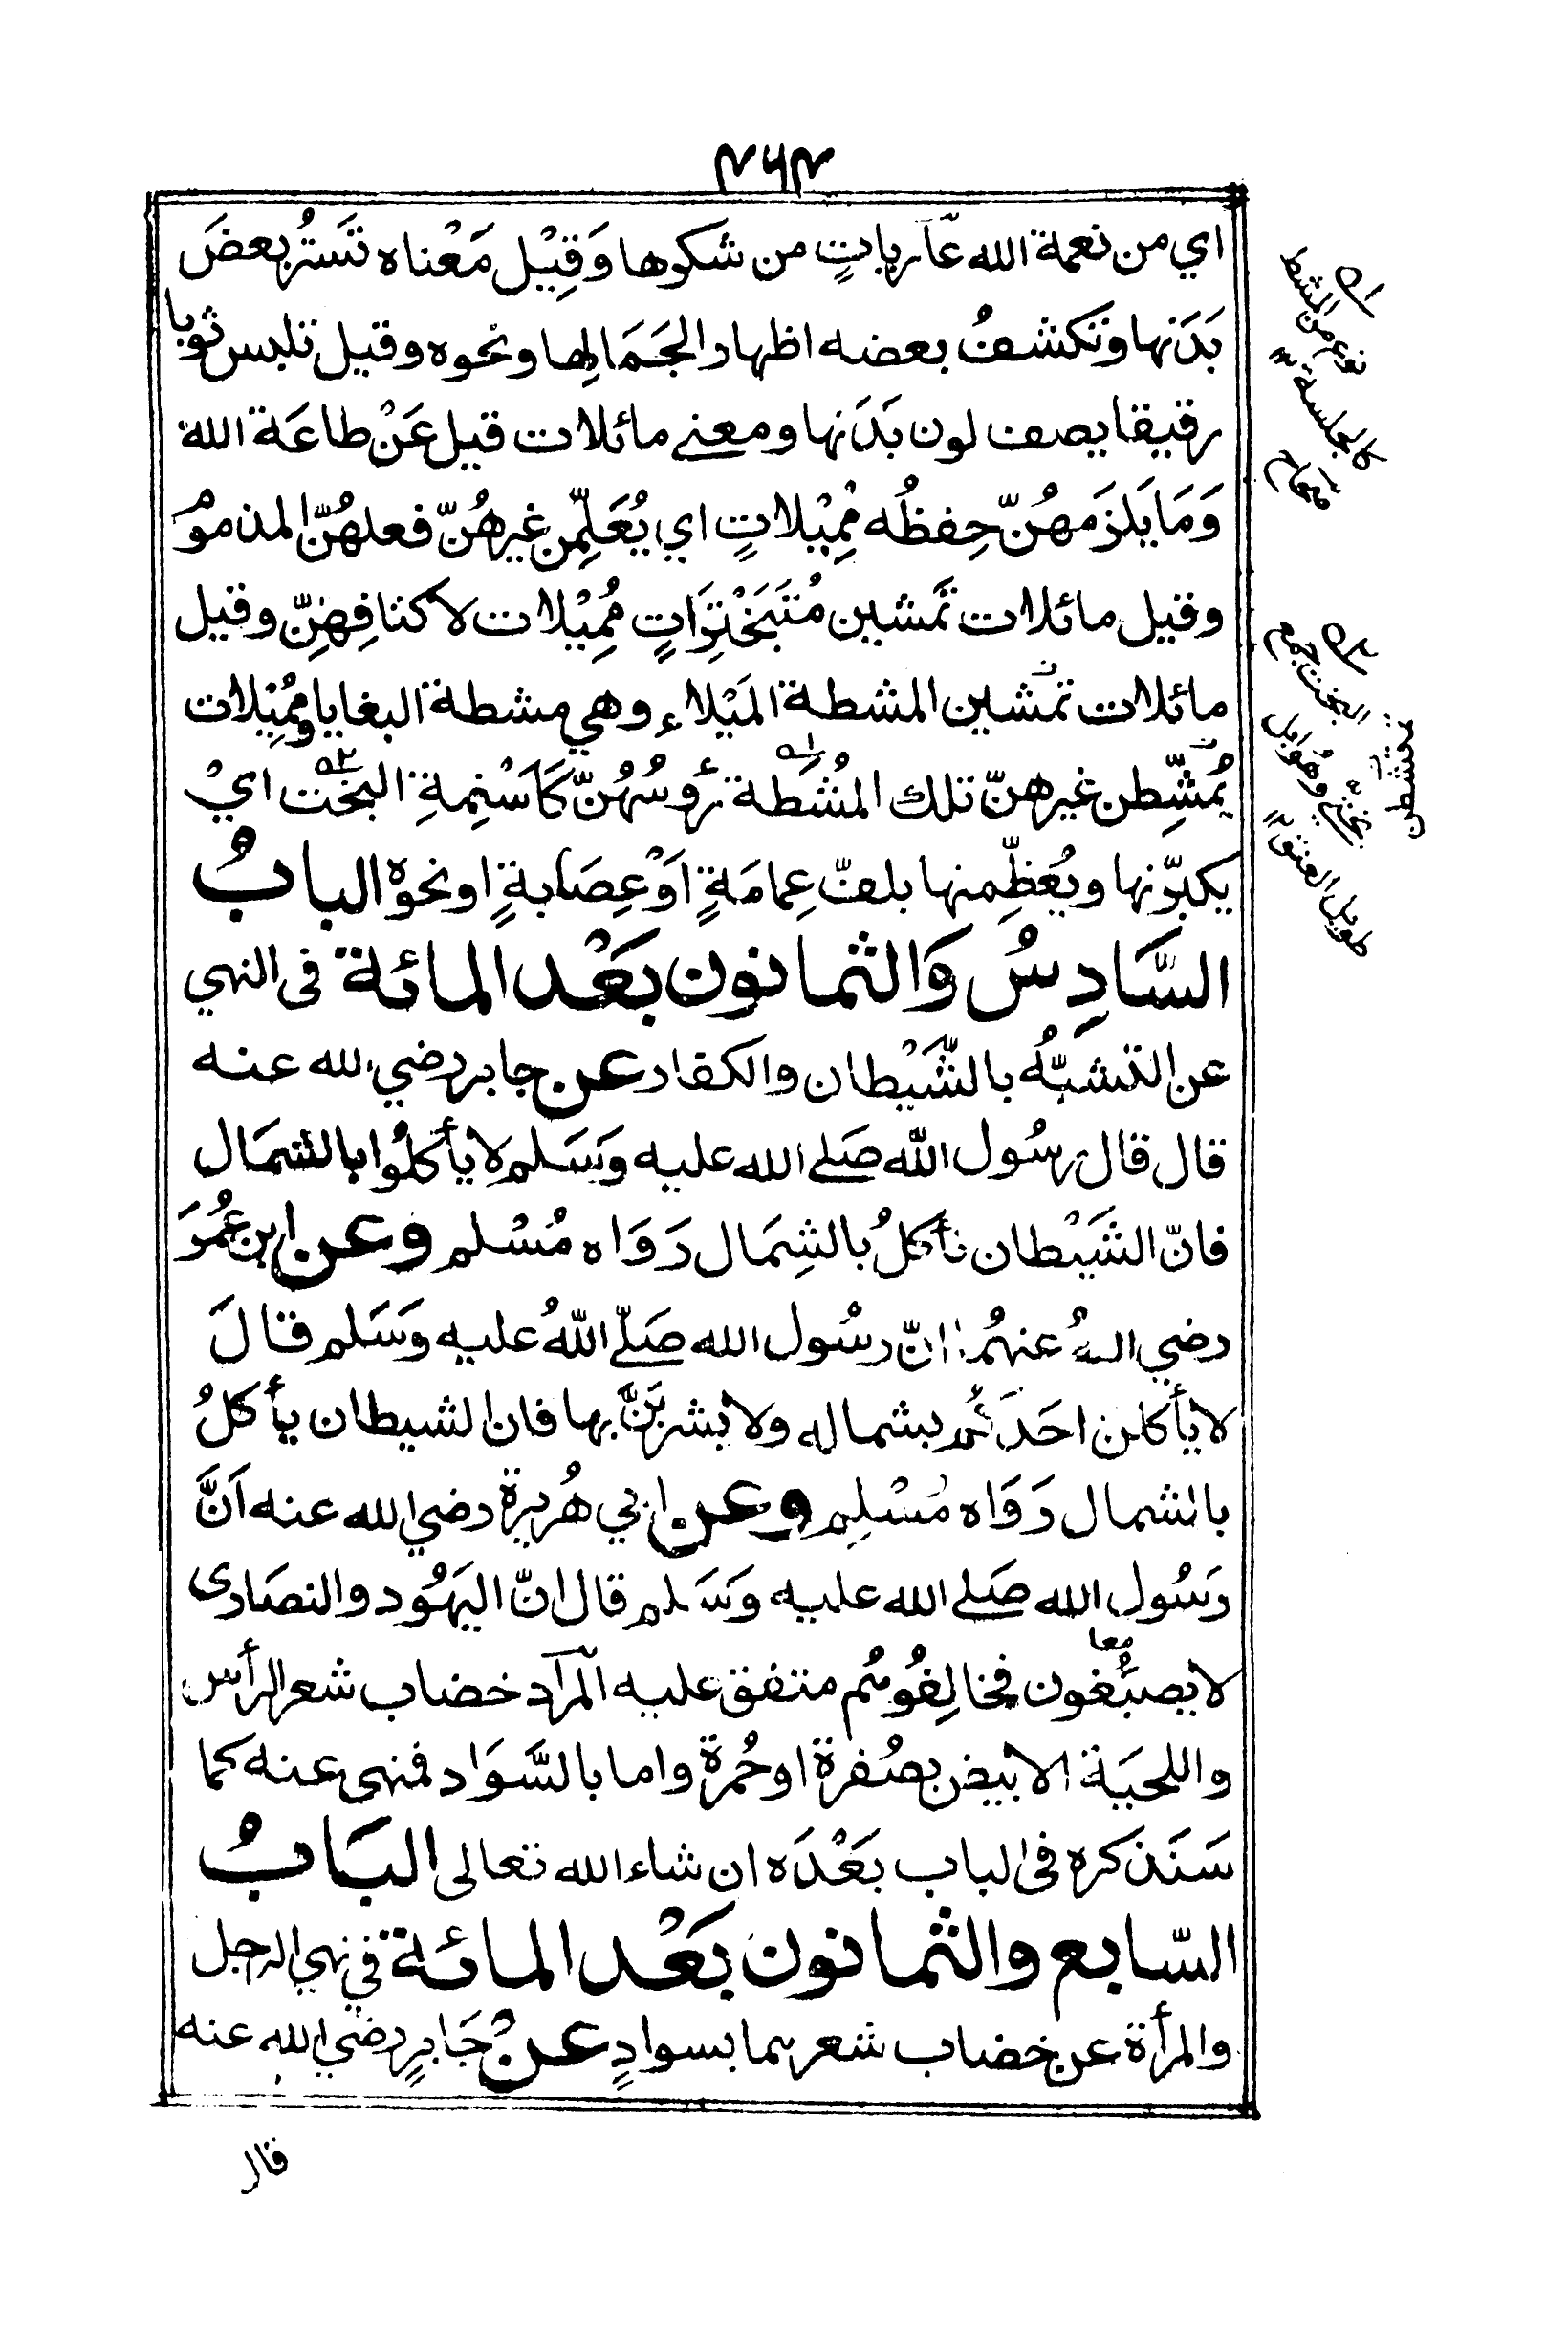 ۳۶۳
اي من نعمة الله عاريات من شكرها وَقِيْل مَعْناه تَسَترُ بعضَ
بَدَنها وتكشفُ بعضه اظهار الجَمَالِها ونحوه وقيل تلبس ثوبا
رقيقا يصف لون بَدَنها ومعنے مائلات قيل عَنْ طاعَة الله
وَمَا يَلزَمهُنّ حِفظُه مُمِيْلاتٍ اي يُعَلِّمن غيرهُنّ فعلهُنّ المذمومُ
وقيل مائلات تَمشين مُتَبَخْتِرَاتٍ مُمِيْلات لاكتافِهنّ وقيل
مائلات تمشين المشطة المَيْلاء وهي مشطة البغايا ومُمِيْلات
يُمَشِّطن غيرهنّ تلك المُشْطة رؤسُهُنّ كَاَسْنِمةِ البخت ايْ
يكبرّنها ويُعَظِّمنها بلفّ عِمامَةٍ اَوْ عِصَابةٍ او نحوه البابُ
السَّادِسُ وَالثمانون بَعْد المائة فى النهي
عن التشبُّه بالشَّيْطان والكفار عن جابر رضي الله عنه
قال قال رسُول الله صَلے الله عليه وَسَلم لا يأكلُوا بالشمَال
فانّ الشَيْطان يأكلُ بالشِمَال رَوَاه مُسْلم وعن ابن عُمَرَ
رضي اللهُ عنهُما انّ رسُول الله صَلّے اللهُ عليه وَسَلم قالَ
لا يأكلن احَدَكُم بشماله ولا يشربَنَّ بها فان الشيطان يأكلُ
بالشمال رَوَاه مُسْلِم وعن ابي هُريرة رضي الله عنه اَنَّ
رَسُول الله صَلے الله عليه وَسَلم قال انّ اليَهُود والنصَارى
لا يصبُغون فخالِفُوهُم متفق عليه المرَاد خضاب شعر الرأس
معا
واللحيَة الابيض بصُفرة او حُمرة واما بالسَّوَاد فمنهى عنه كما
سَنَذكره فى الباب بَعْدَه ان شاء الله تعالى البَابُ
السّابع والثمانون بَعْد المائة في نهي الرجل
والمرأة عن خضاب شعرهما بسوادٍ عنْ جَابرٍ رضي الله عنه
قال
۱ه
نوع من المشط
كالجلسة
۲ه
البخت جمع
بختي وهو ابل
طويل العنق
تمتشطن